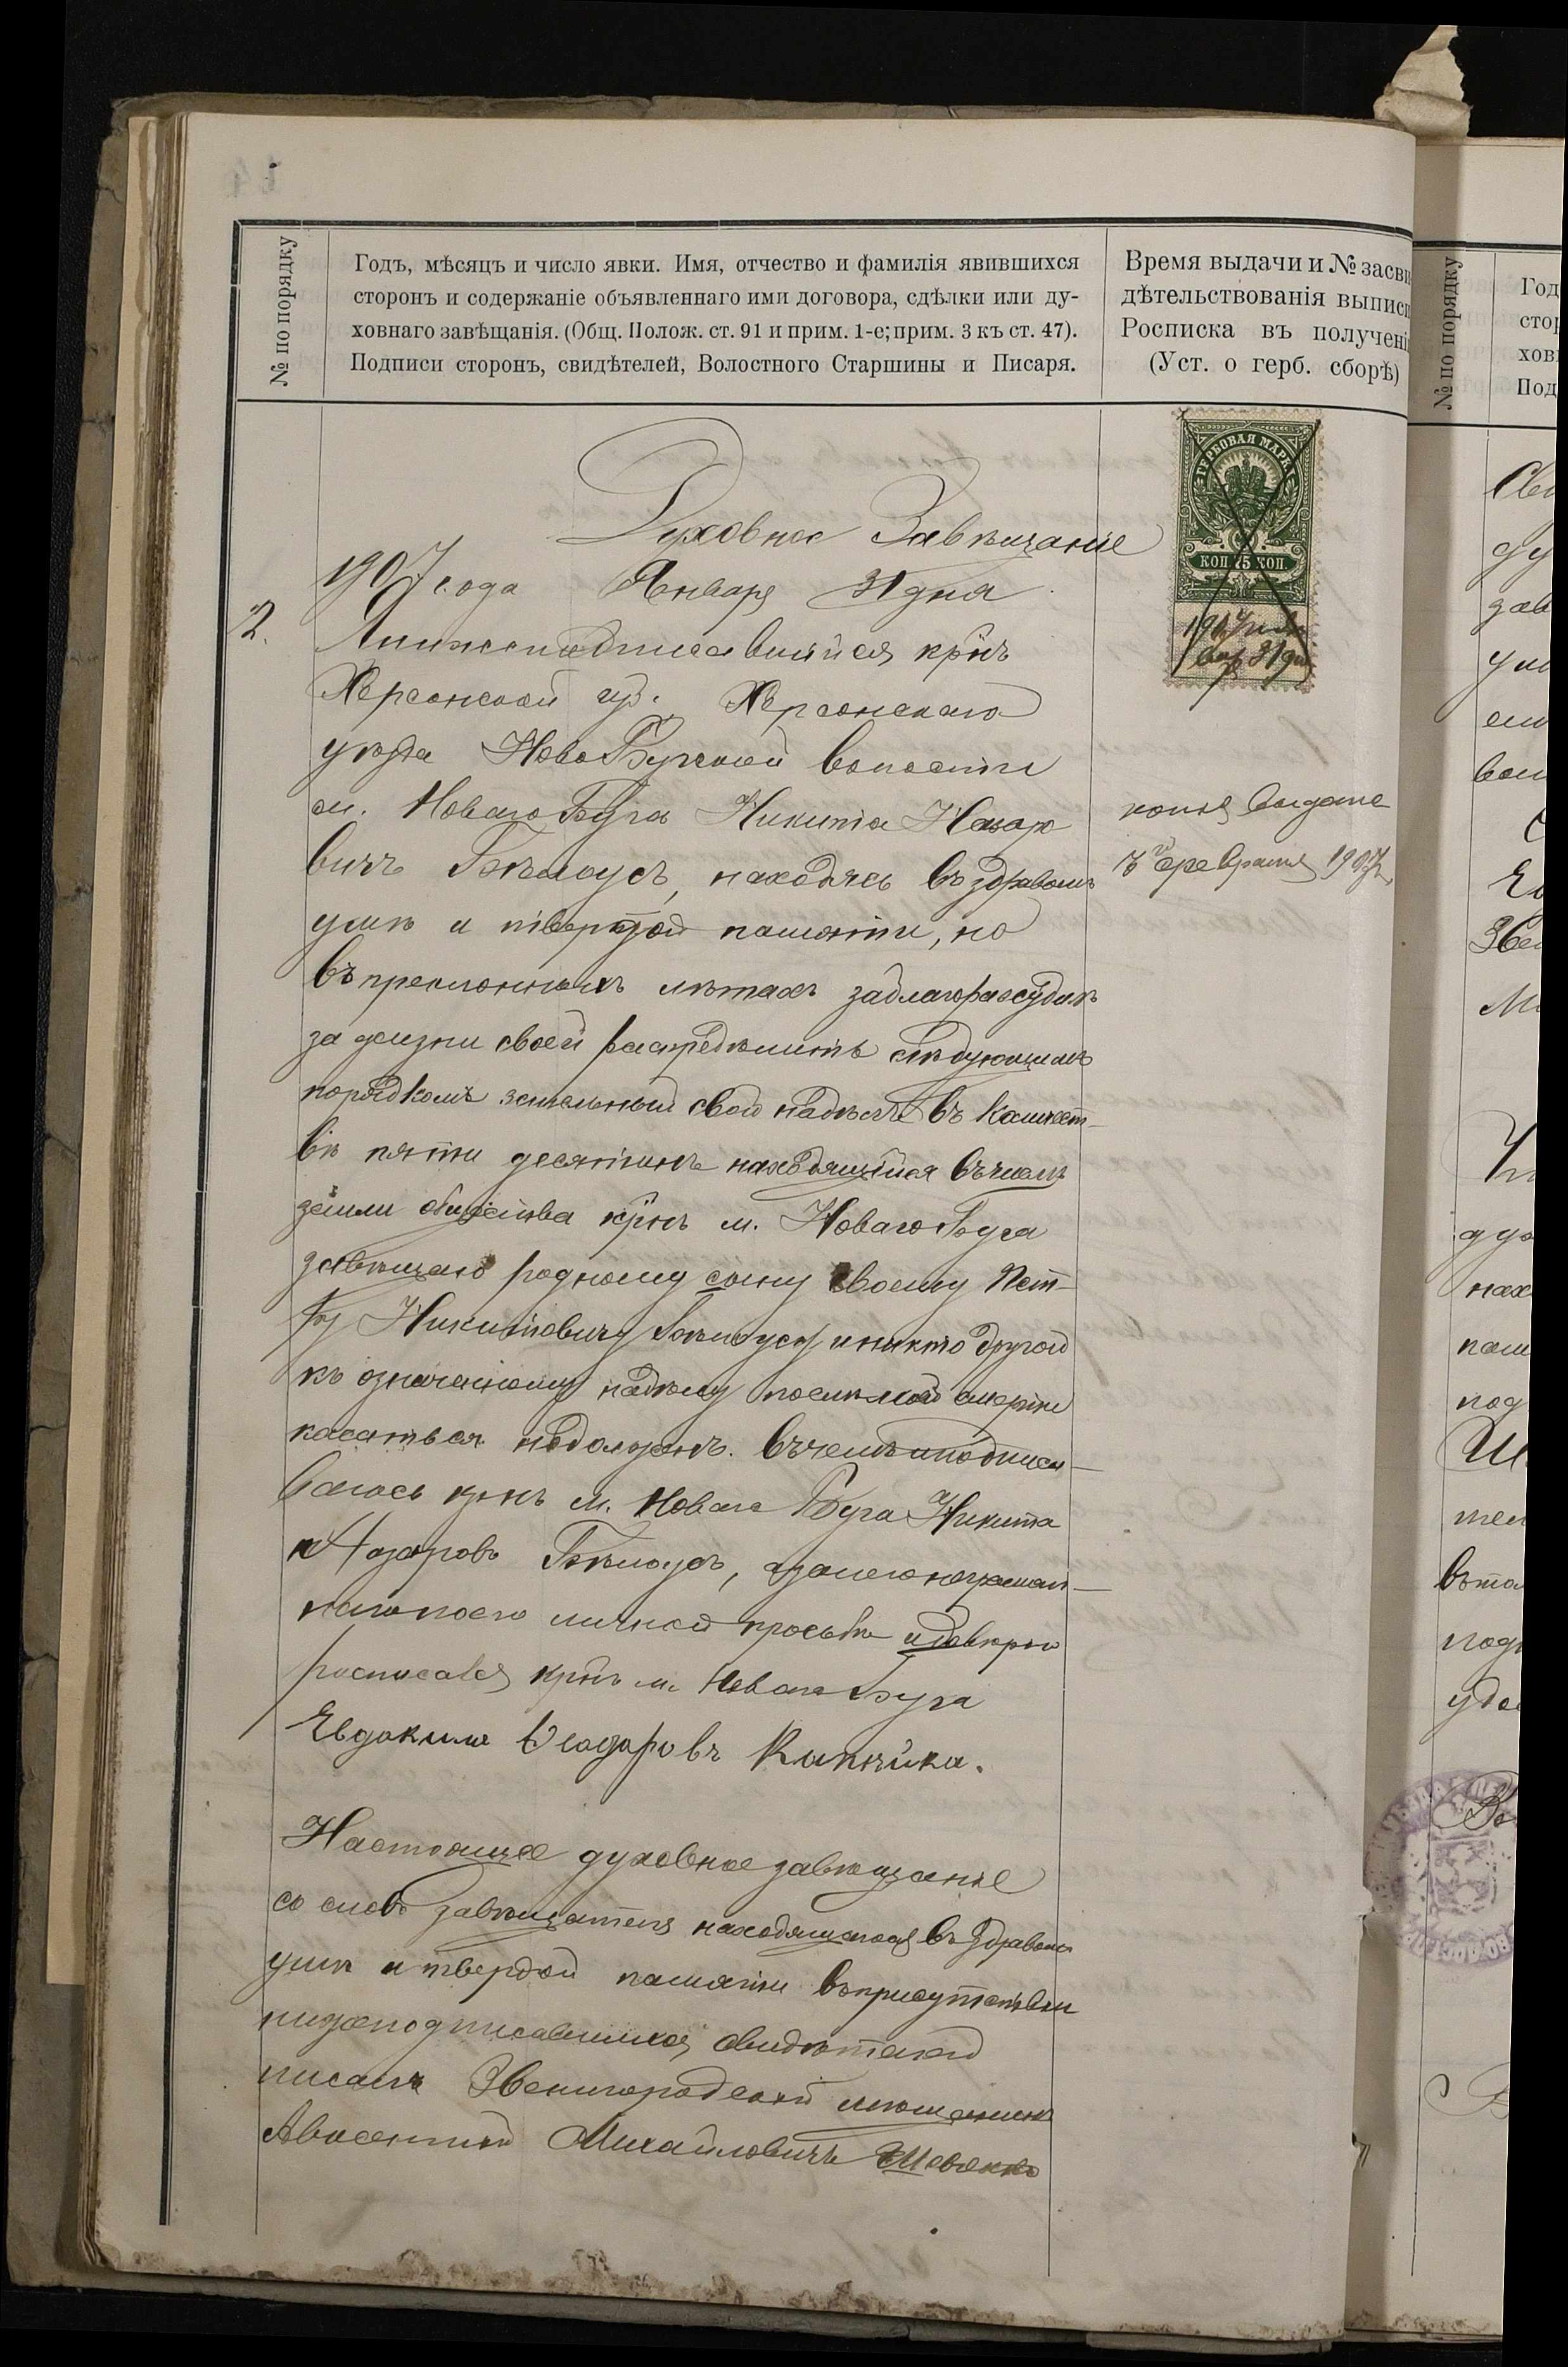 № по порядку
Годъ, мѣсяцъ и число явки. Имя, отчество и фамилія явившихся
сторонъ и содержаніе объявленнаго ими договора, сдѣлки или ду-
ховнаго завѣщанія. (Общ. Полож. ст. 91 и прим. 1-е; прим. 3 къ ст. 47).
Подписи сторонъ, свидѣтелей, Волостного Старшины и Писаря.
Время выдачи и № засви
дѣтельствованія выписи
Росписка въ полученіи
(Уст. о герб. сборѣ)
ГЕРБОВАЯ МАРКА
КОП 75 КОП.
Духовное Завѣщаніе
1907 года Января 31 дня
2.
Я нижеподписавшийся крнъ
Херсонской губ. Херсонскаго
уѣзда НовоБугской волости
м. Новаго Буга Никита Назаро
вичъ Бѣлоусъ, находясь въ здравомъ
умѣ и твердой памяти, но
въ преклонныхъ лѣтахъ заблагоразсудилъ
за жизни своей распредѣлить слѣдующимъ
порядкомъ земельный свой надѣлъ въ количест-
вѣ пяти десятинъ находящийся въ
земли общества крнъ м. Новаго Буга
завѣщаю родному сыну своему Пет-
ру Никитовичу Бѣлоусу и никто другой
къ означенному надѣлу послѣ моей смерти
касаться недолженъ. Въ чемъ и подписы-
ваюсь крнъ м. Новаго Буга Никита
Назаровъ Бѣлоусъ, а за него неграмот-
наго по его личной просьбѣ и довѣрію
росписался крнъ м. Новаго Буга
Евдокимъ Ѳеодоровъ
Настоящее духовное завѣщаніе
со словъ завѣщателя находящагося въ здравомъ
умѣ и твердой памяти въ присутствіи
нижеподписавшихся свидѣтелей
писалъ Звенигородский мѣщанинъ
Авксентий Михайловичъ
копія выдана
Февраля 1907 г.
№ по порядку
Год
стор
хов
Под